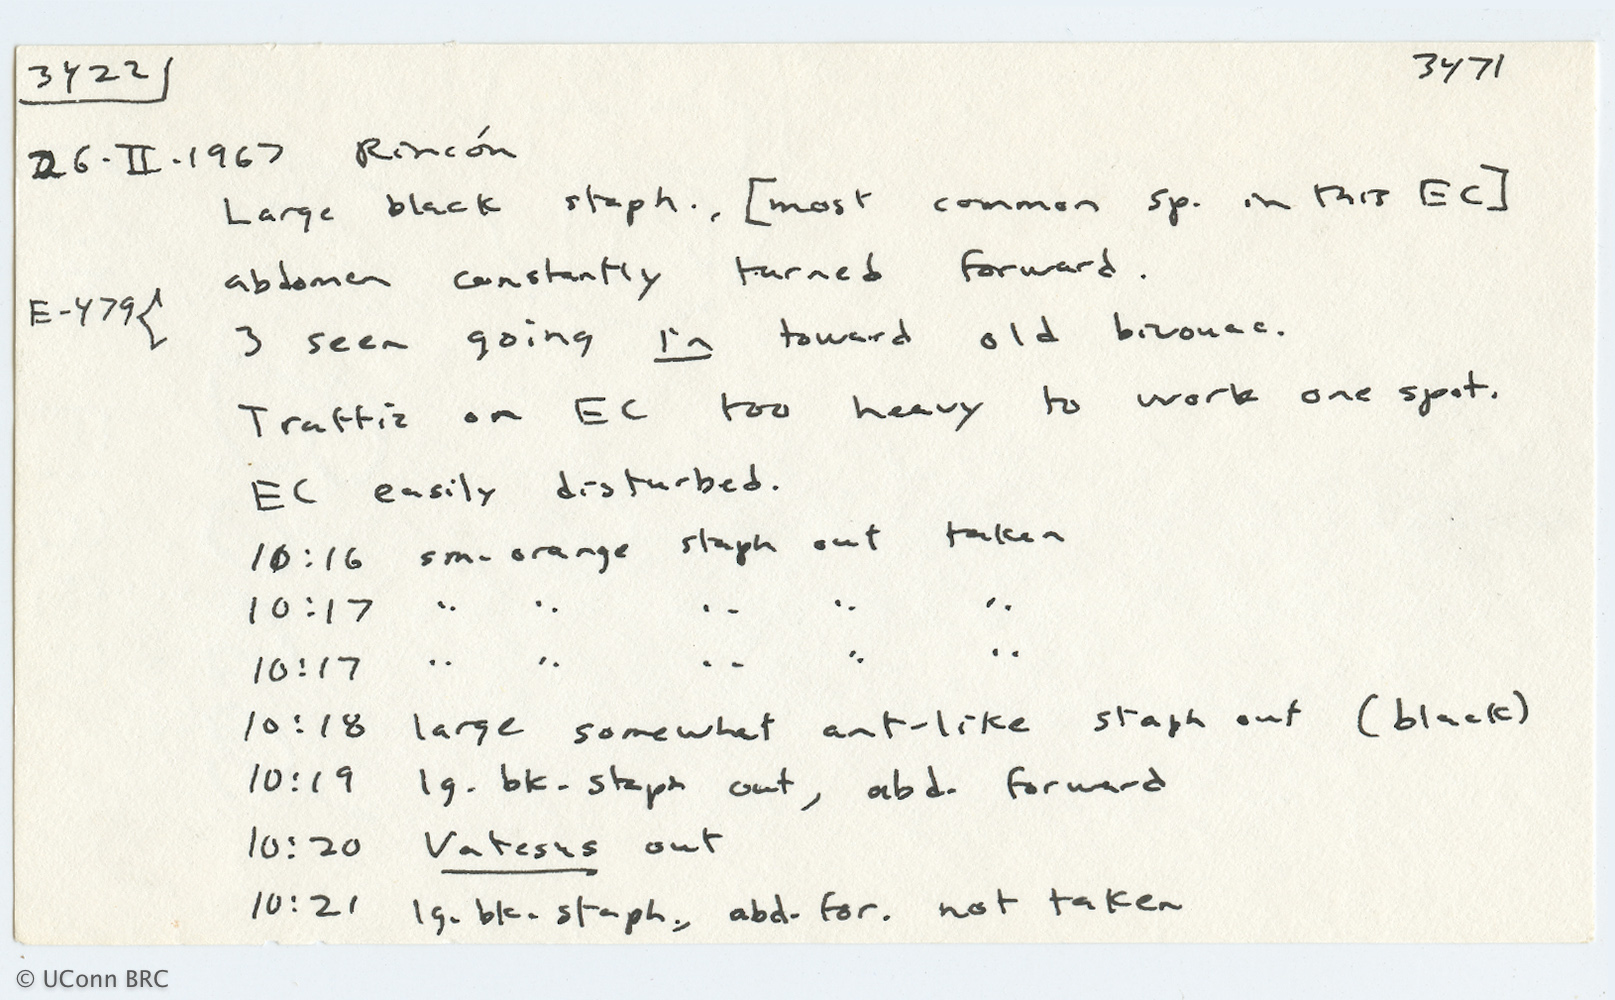 3422 3471
26·II·1967 Rincón
Large black staph., [most common sp. in this EC]
abdomen constantly turned forward.
E-479{
3 seen going in toward old bivouac.
Traffic on EC too heavy to work one spot.
EC easily disturbed.
10:16 sm. orange staph out taken
10:17 " " " " "
10:17 " " " " "
10:18 large somewhat ant-like staph out (black)
10:19 lg. bk. staph out, abd. forward
10:20 Vatesus out
10:21 lg. bk. staph., abd. for. not taken
© UConn BRC